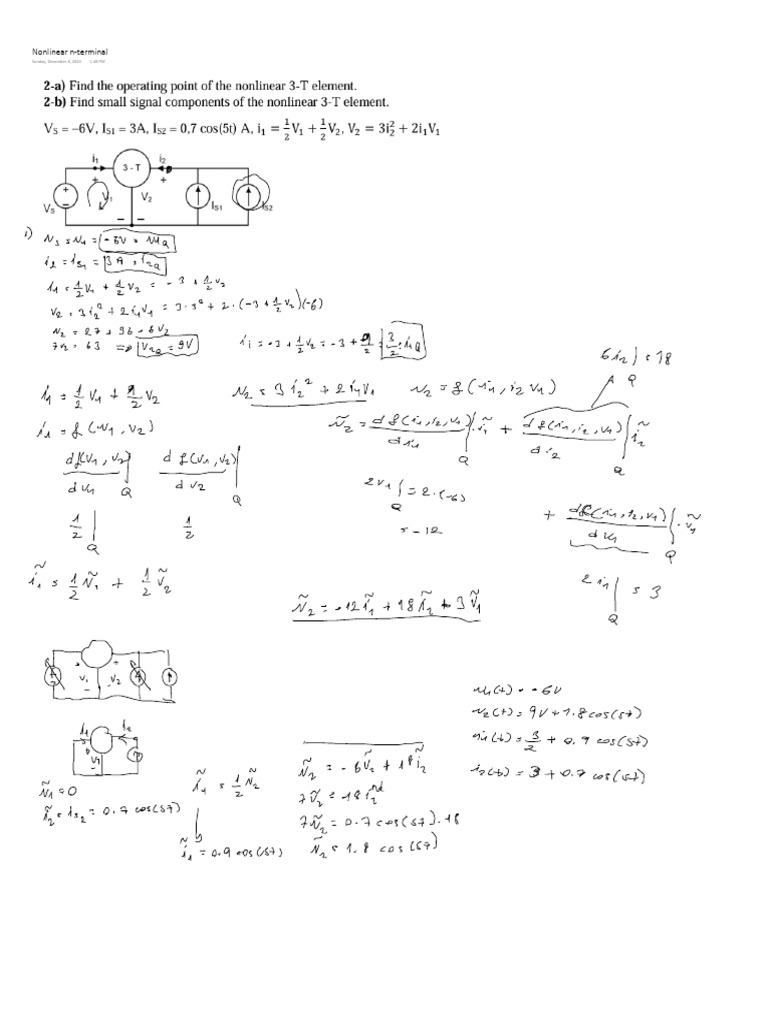 Nonlinear n-terminal
Sunday, December 6, 2020 1:48 PM
2-a) Find the operating point of the nonlinear 3-T element.
2-b) Find small signal components of the nonlinear 3-T element.
V_S = –6V, I_S1 = 3A, I_S2 = 0,7 cos(5t) A, i₁ = 1/2 V₁ + 1/2 V₂, V₂ = 3i₂² + 2i₁V₁
i₁ 3 - T i₂
+ + V₁ V₂ + –
V_S I_S1 I_S2
i)
V_S = V₁ = -6V = V₁Q
i₂ = i_S1 = 3A = i₂Q
i₁ = 1/2 V₁ + 1/2 V₂ = -3 + 1/2 V₂
V₂ = 3i₂² + 2i₁V₁ = 3·3² + 2·(-3 + 1/2 V₂)(-6)
V₂ = 27 + 36 - 6V₂
7V₂ = 63 => V₂Q = 9V
i₁ = -3 + 1/2 V₂ = -3 + 9/2 = 3/2 = i₁Q
6i₂|Q = 18
i₁ = 1/2 V₁ + 1/2 V₂
V₂ = 3i₂² + 2i₁V₁
V₂ = f(i₁, i₂, V₁)
i₁ = f(V₁, V₂)
ṽ₂ = df(i₁, i₂, V₁)/di₁ |Q · ĩ₁ + df(i₁, i₂, V₁)/di₂ |Q ĩ₂
+ df(i₁, i₂, V₁)/dV₁ |Q · ṽ₁
df(V₁, V₂)/dV₁ |Q
df(V₁, V₂)/dV₂ |Q
2V₁|Q = 2·(-6)
= -12
1/2 |Q
1/2
2i₁|Q = 3
ĩ₁ = 1/2 ṽ₁ + 1/2 ṽ₂
ṽ₂ = -12ĩ₁ + 18ĩ₂ + 3ṽ₁
V₁ V₂
i₁ i₂
V₁
V₁(t) = -6V
V₂(t) = 9V + 1.8 cos(5t)
i₁(t) = 3/2 + 0.9 cos(5t)
i₂(t) = 3 + 0.7 cos(5t)
ṽ₁ = 0
ĩ₂ = i_S2 = 0.7 cos(5t)
ĩ₁ = 1/2 ṽ₂
ĩ₁ = 0.9 cos(5t)
ṽ₂ = -6ṽ₂ + 18ĩ₂
7ṽ₂ = 18ĩ₂
7ṽ₂ = 0.7 cos(5t).18
ṽ₂ = 1.8 cos(5t)